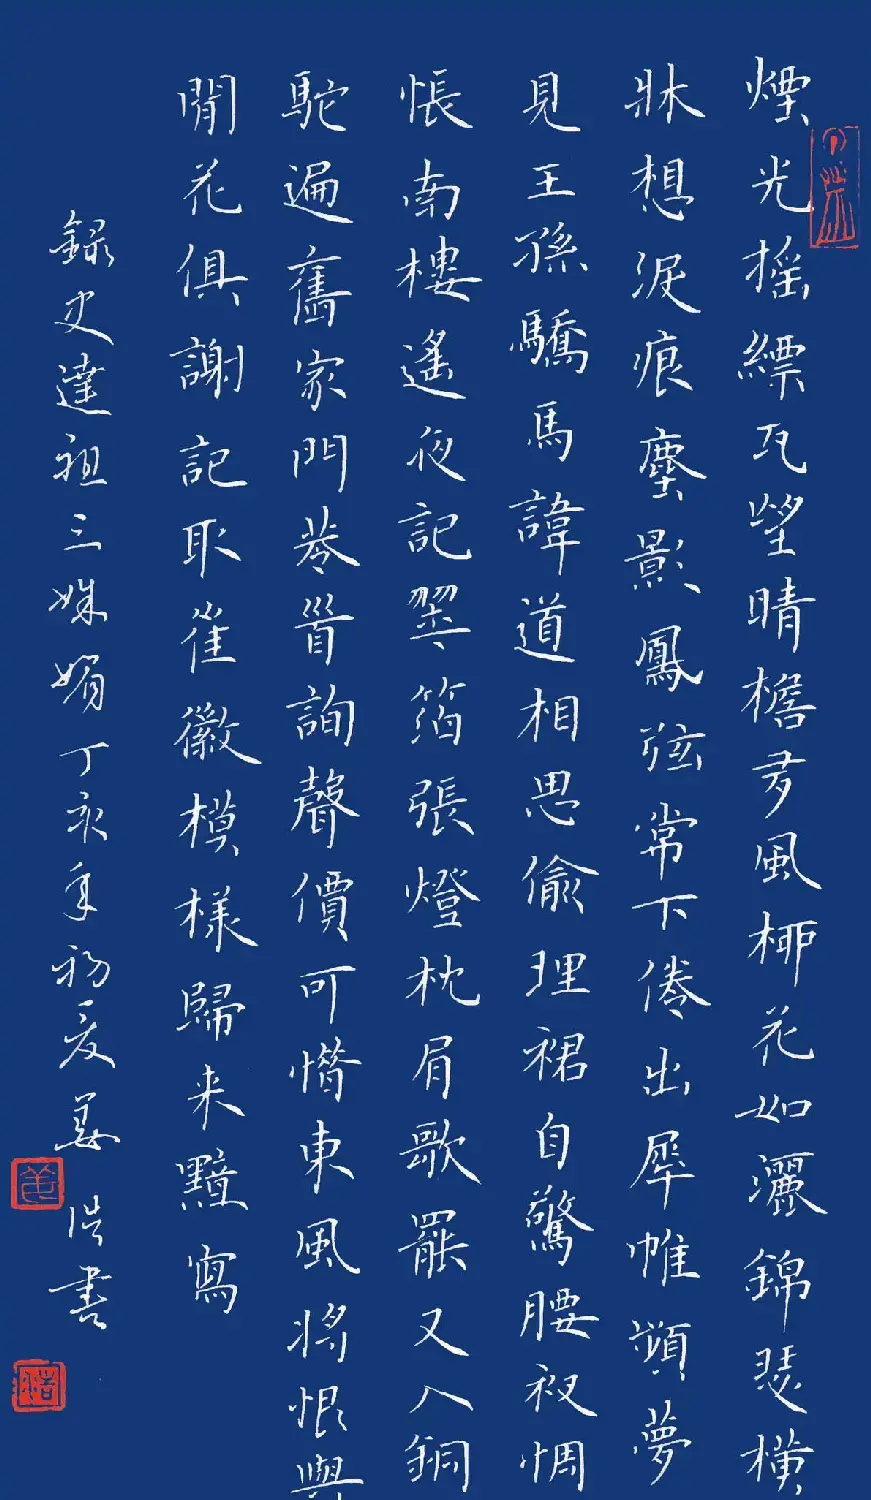 煙光搖縹瓦望晴檐多風柳花如灑錦瑟橫
牀想淚痕塵影鳳弦常下倦出犀帷頻夢
見王孫驕馬諱道相思偷理裙自驚腰衩惆
悵南樓遙夜記翠箔張燈枕肩歌罷又入銅
駝遍舊家門巷首詢聲價可惜東風將恨與
閒花俱謝記取崔徽模樣歸来黯寫
録史達祖三姝媚丁亥年初夏姜浩書